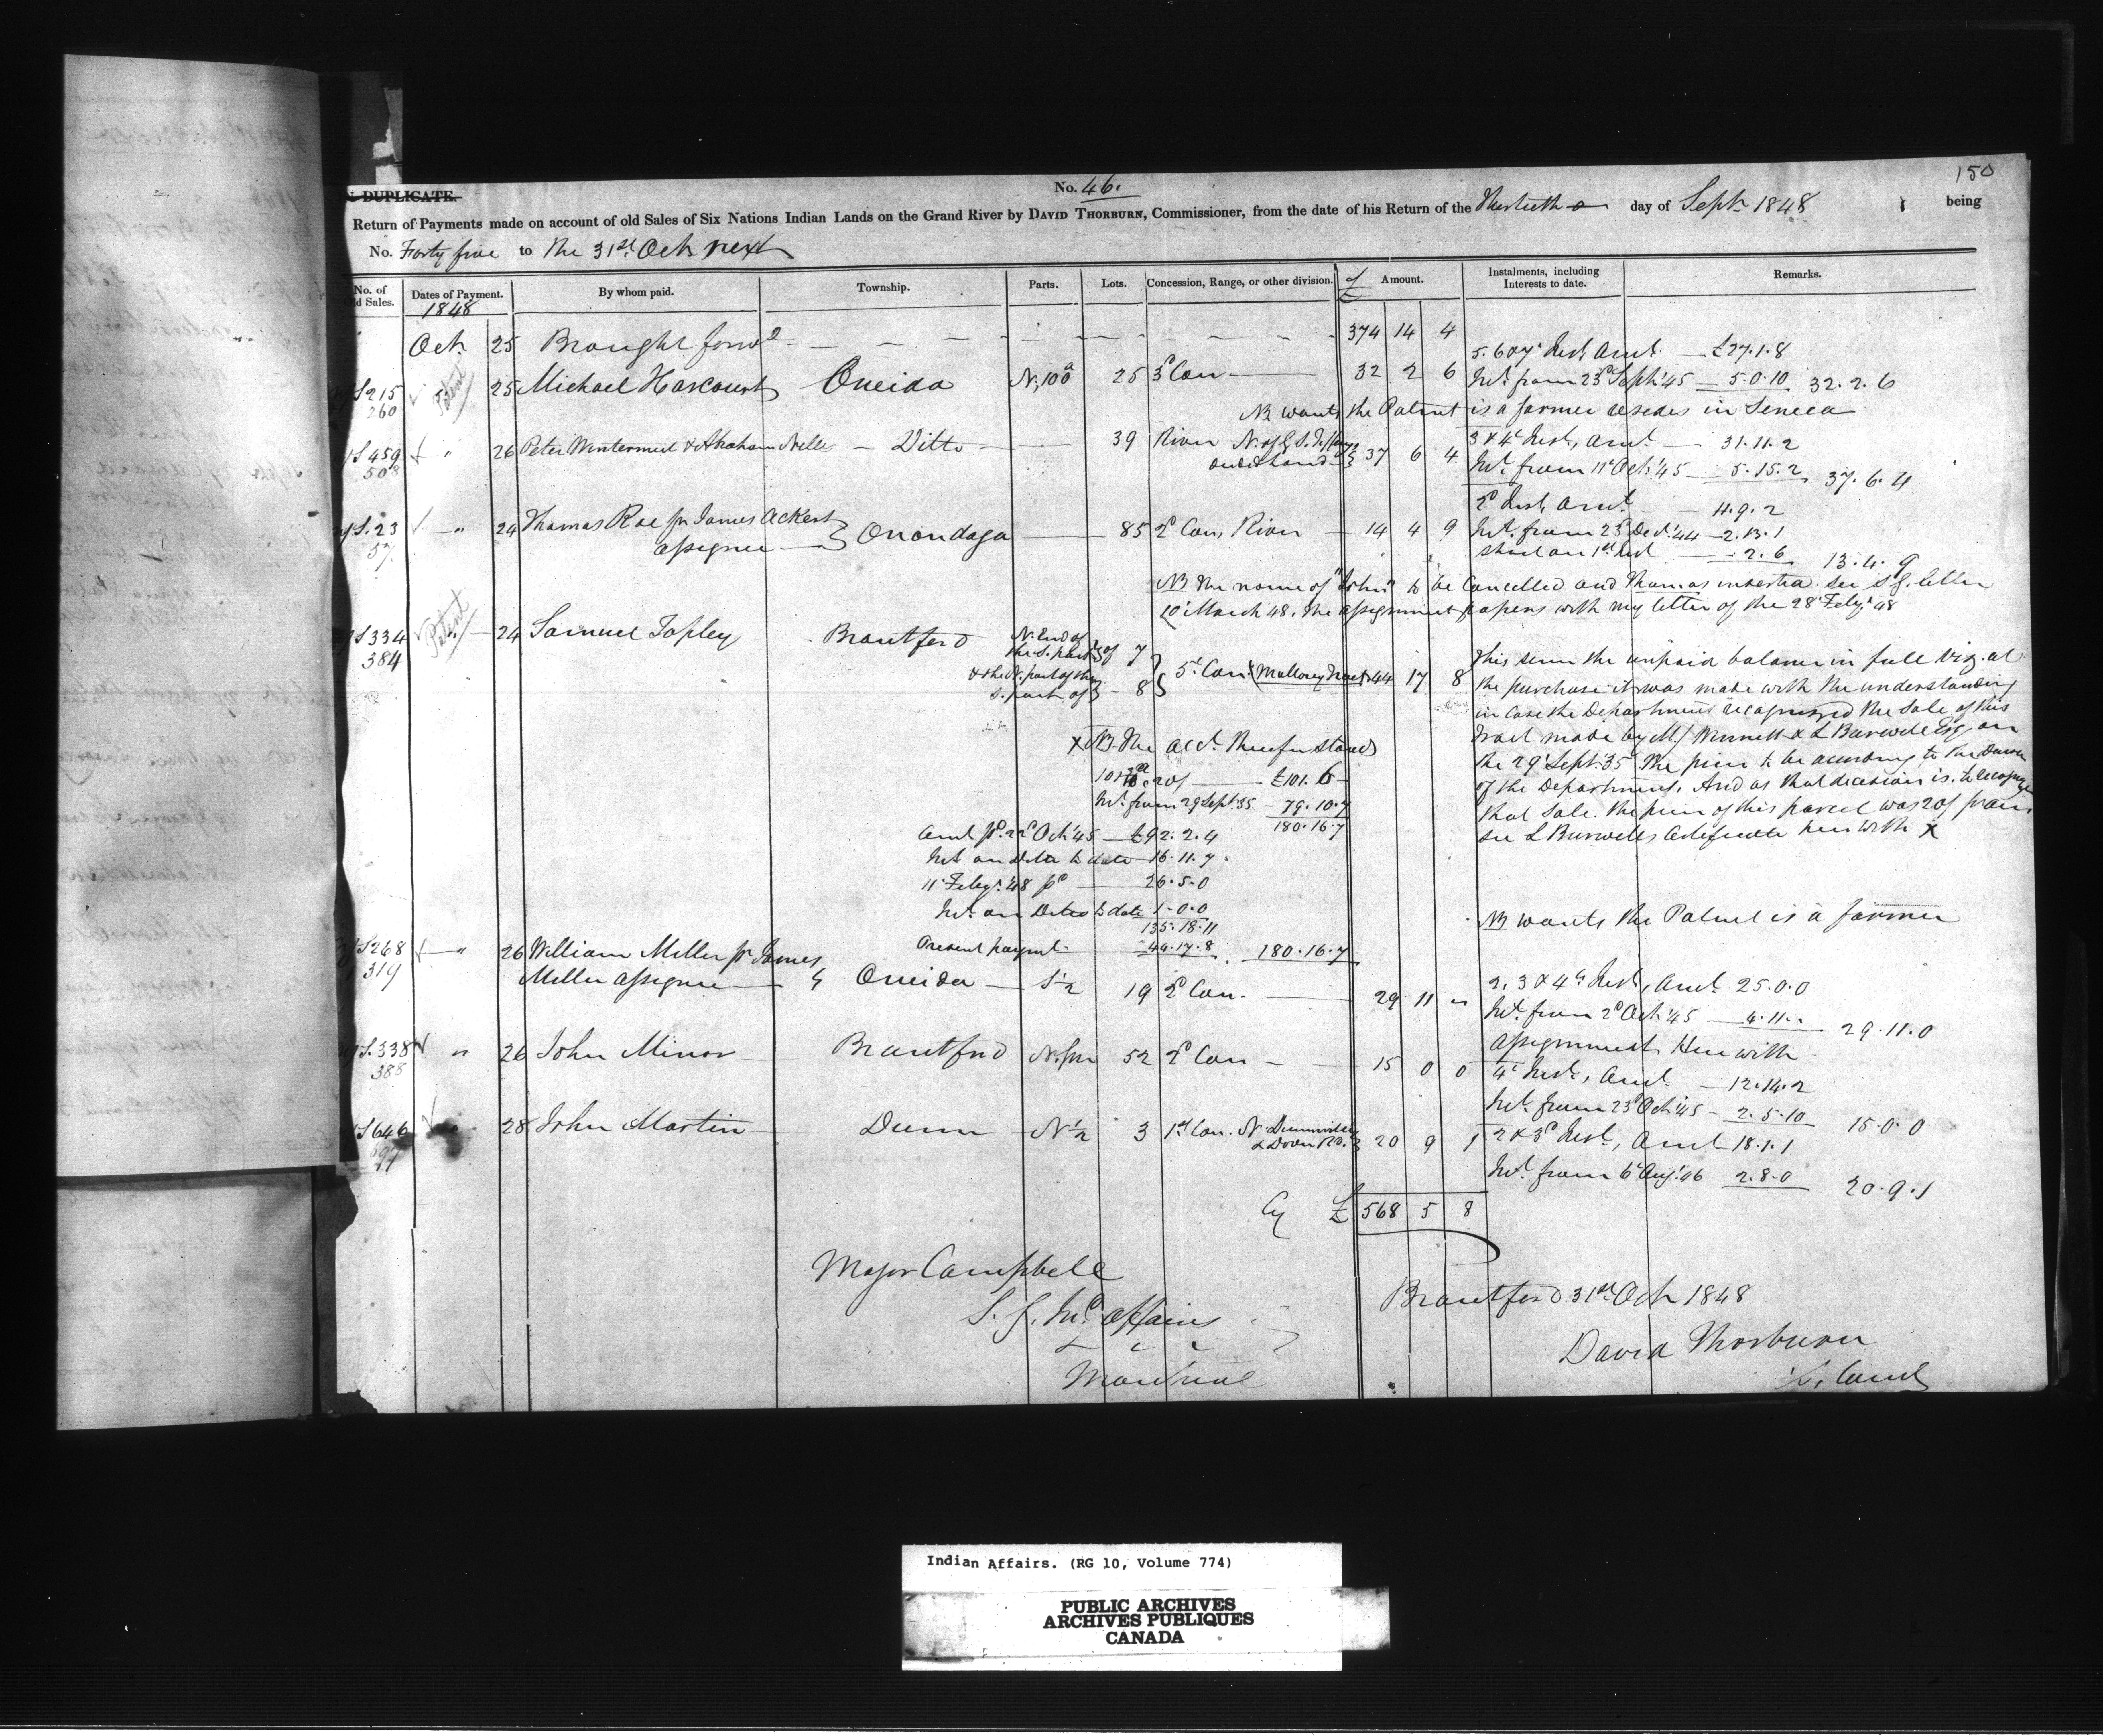 150
IN DUPLICATE.
No. 46.
Return of Payments made on account of old Sales of Six Nations Indian Lands on the Grand River by DAVID THORBURN, Commissioner, from the date of his Return of the Thirtieth day of Sept. 1848 being
No. Forty five to the 31st Oct. next
No. of Old Sales. Dates of Payment. By whom paid. Township. Parts. Lots. Concession, Range, or other division. £ Amount. Instalments, including Interests to date. Remarks.
1848
Oct. 25 Brought forwd 374 14 4
5. 6 & 7 Inst, Amt £27.1.8
S 215 Patent 25 Michael Harcourt Oneida N, 100a 25 3d Con 32 2 6 Int. from 23d Sept. 45 5.0.10 32.2.6
260
NB wants the Patent is a farmer resides in Seneca
S 459 " 26 Peter Wintermut & Abraham Nelles Ditto 39 River 37 6 4 3 & 4 Inst, Amt 31.11.2
508
Int. from 11 Oct. 45 5.15.2 37.6.4
2d Inst, Amt 11.9.2
S. 23 " 24 Thomas Roe pr James Ackert Onondaga 85 2d Con, River 14 4 9 Int. from 23d Dec. 44 2.13.1
57. assignee
short on 1st Inst 2.6 13.4.9
NB The name of "John" to be Cancelled and Thomas inserted. see S.G. letter
10 March 48. the assignment papers with my letter of the 28 Feby 48
S 334 Patent 24 Samuel Tapley Brantford N. End of the S. part of 7
384
& the N. part of the S. part of 8 5th Con. (Mallory Tract 44 17 8
This sum the unpaid balance in full Viz. at
the purchase it was made with the understanding
in case the Department recognized the Sale of this
tract made by & L Burwell Esq. on
the 29 Sept. 35 The price to be according to the
of the Department. And as that decision is to recognize
that Sale. the price of this parcel was 20/ pr acre
see L Burwells Certificate here with X
X NB. The acct. therefor stands
20/ £101.6
Int. from 29 Sept. 35 79.10.7
180.16.7
Amt pd. 22d Oct. 45 £92.2.4
Int on Ditto to date 16.11.7
11 Feby. 48 pd 26.5.0
Int. on Ditto to date 1.0.0
135.18.11
Present paymt. 44.17.8 180.16.7
NB wants the Patent is a farmer
S 268 " 26 William Miller pr James
319 Miller assignee Oneida S ½ 19 2d Con. 29 11 " 2, 3 & 4th Inst, Amt 25.0.0
Int. from 2d Oct. 45 4.11. 29.11.0
Assignment Here with
S. 338 " 26 John Minor Brantford N. pt 52 2d Con 15 0 0 4 Inst, Amt 12.14.2
388
Int. from 23d Oct. 45 2.5.10 15.0.0
S 646 28 John Martin Dunn N ½ 3 1st Con. N. Dunnville & Dover Rd. 20 9 1 2 & 3d Inst, Amt 18.1.1
697
Int. from 6 Aug. 46 2.8.0 20.9.1
Cy £ 568 5 8
Major Campbell
S. G. Ind. Affairs
Montreal
Brantford 31st Oct 1848
David Thorburn
Indian Affairs. (RG 10, Volume 774)
PUBLIC ARCHIVES
ARCHIVES PUBLIQUES
CANADA